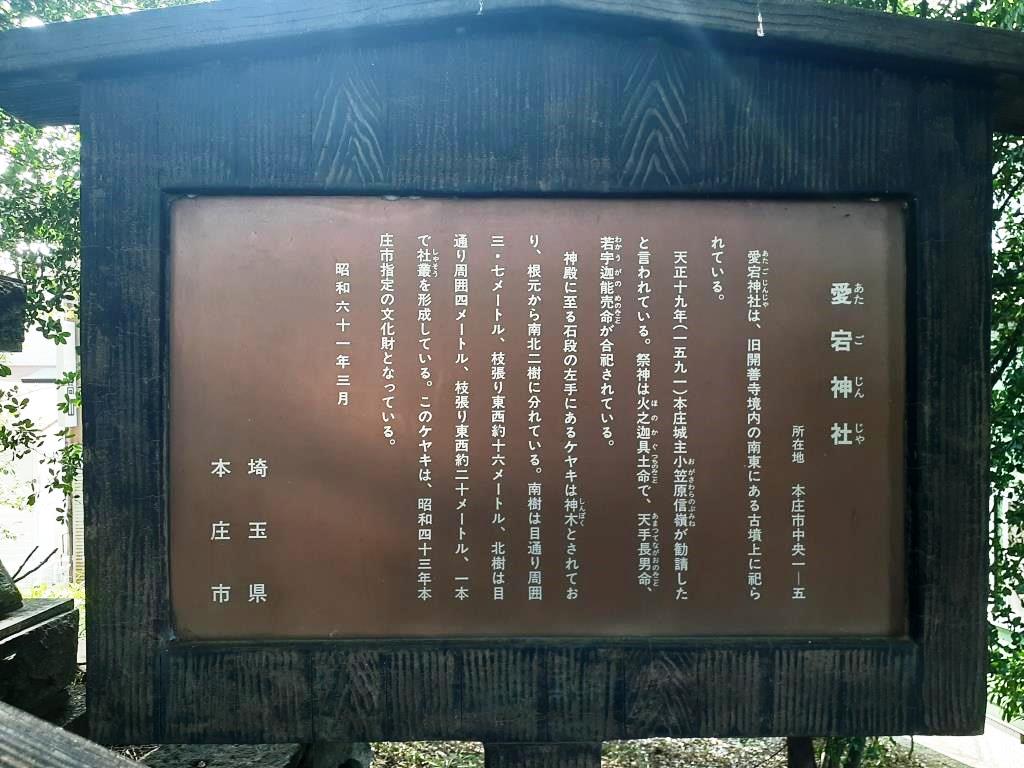 愛宕神社
あたごじんじゃ
所在地　本庄市中央一―五
愛宕神社は、旧開善寺境内の南東にある古墳上に祀ら
あたごじんじゃ
れている。
天正十九年(一五九一)本庄城主小笠原信嶺が勧請した
おがさわらのぶみね
と言われている。祭神は火之迦具土命で、天手長男命、
ほのかぐつちのみこと　あまつてながおのみこと
若宇迦能売命が合祀されている。
わかうがのめのみこと
神殿に至る石段の左手にあるケヤキは神木とされてお
しんぼく
り、根元から南北二樹に分れている。南樹は目通り周囲
三・七メートル、枝張り東西約十六メートル、北樹は目
通り周囲四メートル、枝張り東西約二十メートル、一本
で社叢を形成している。このケヤキは、昭和四十三年本
しゃそう
庄市指定の文化財となっている。
昭和六十一年三月
埼玉県
本庄市